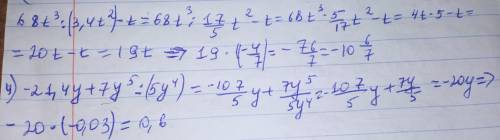 68t³:(3,4t²)-t=68t³:17/5 t²-t=68t³·5/17t²-t=4t·5-t=
=20t-t=19t ⇒ 19·(-4/7)=-76/7=-10 6/7
4) -21,4y+7y⁵:(5y⁴)=-107/5 y+7y⁵/5y⁴=-107/5 y+7y/5=-20y⇒
-20·(-0,03)=0,6